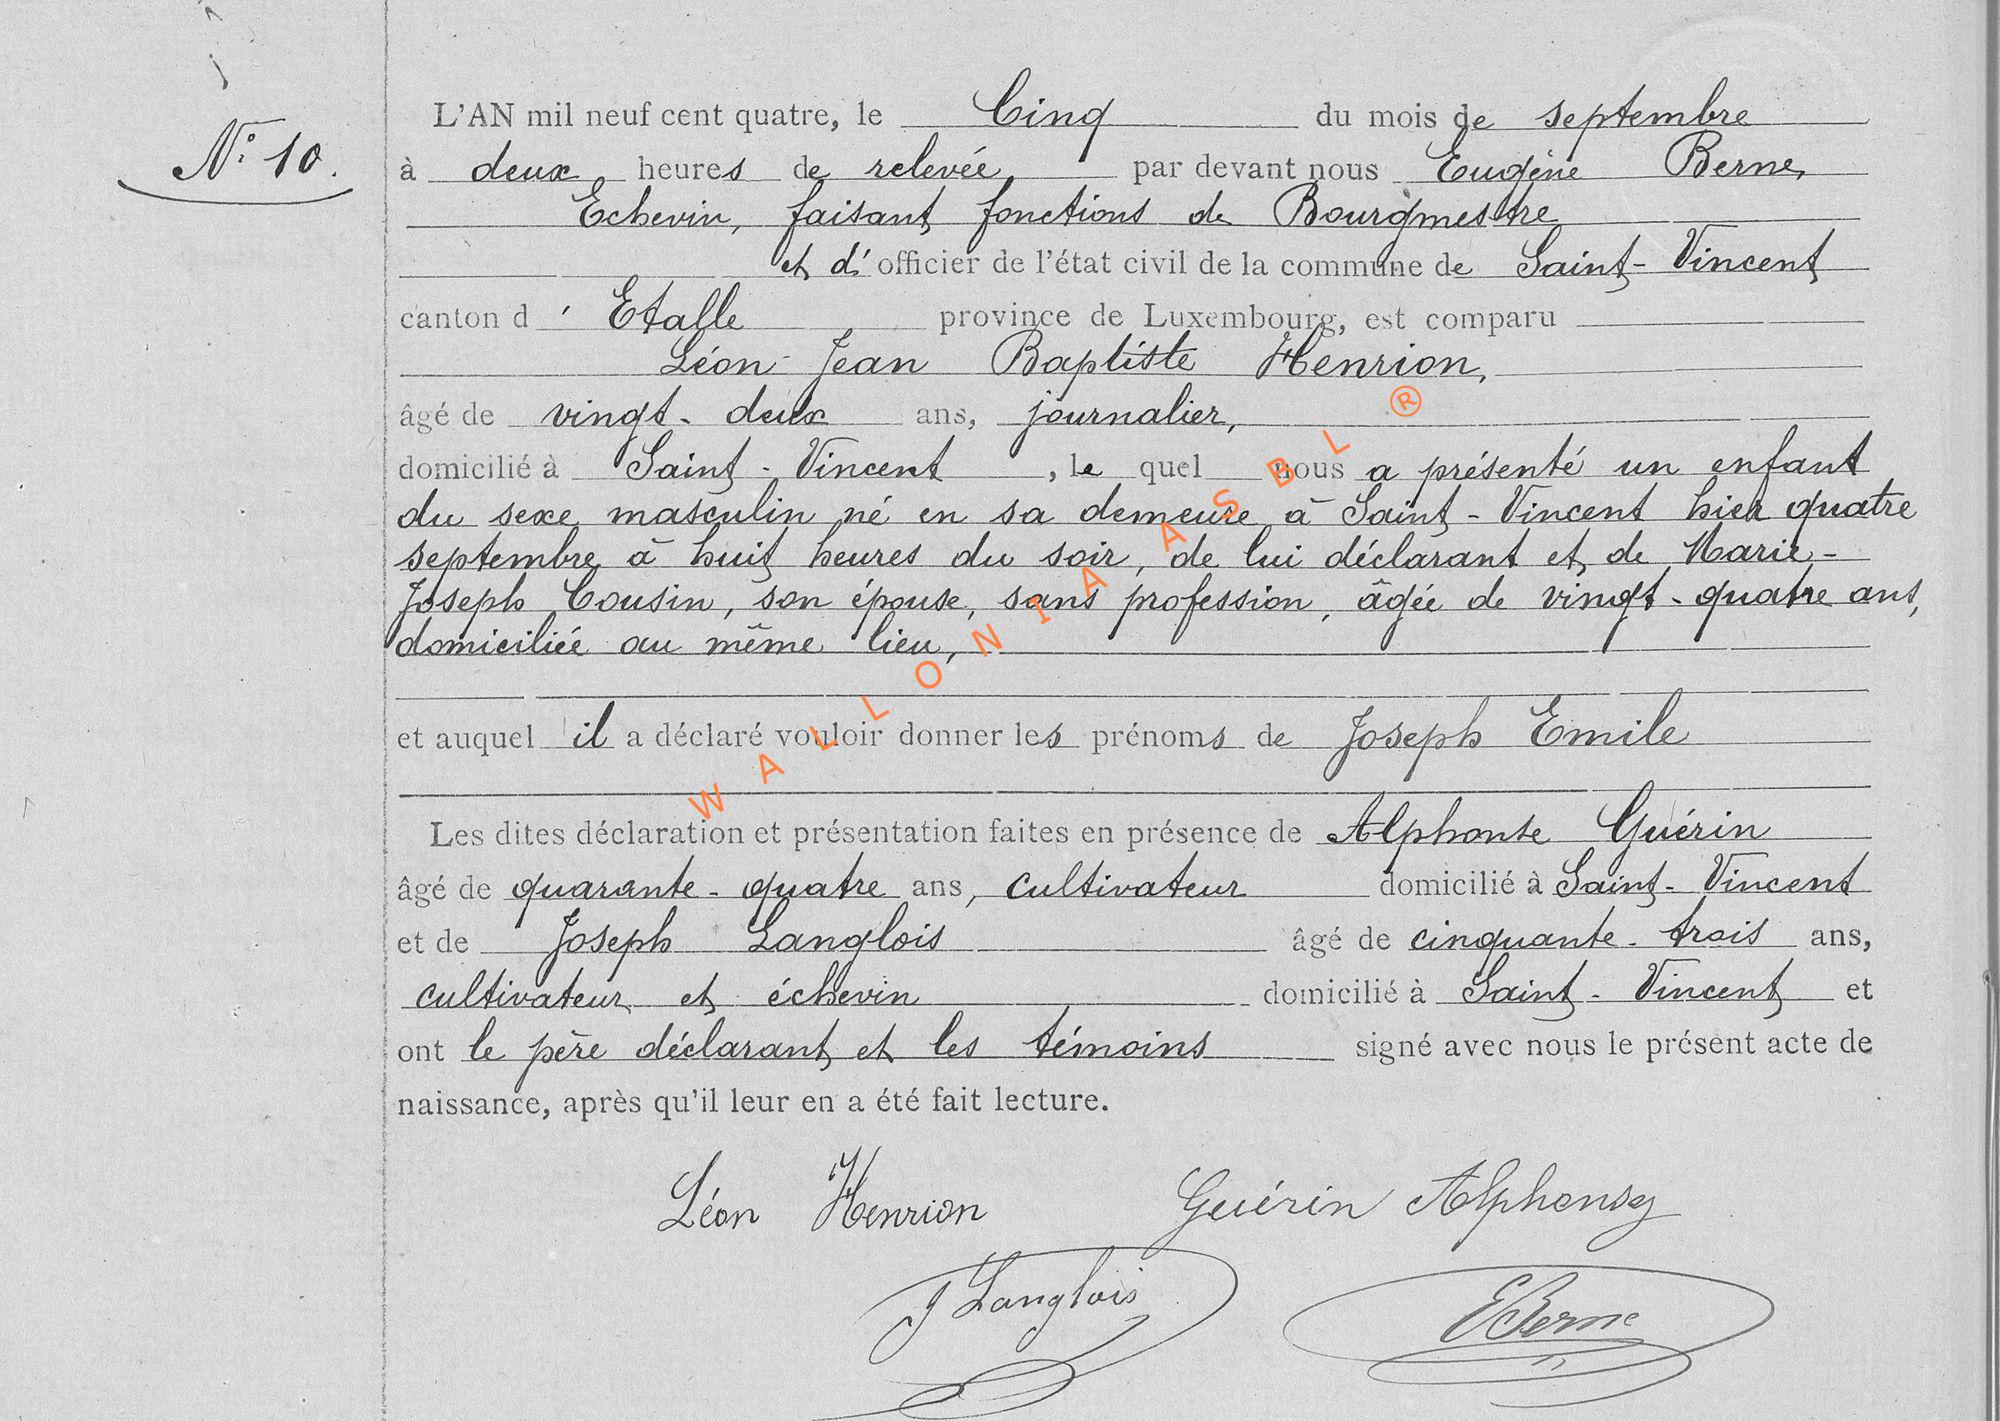 N° 10.
L'AN mil neuf cent quatre, le Cinq du mois de septembre
à deux heures de relevée par devant nous Eugène Berne,
Echevin, faisant fonctions de Bourgmestre
et d'officier de l'état civil de la commune de Saint-Vincent
canton d'Etalle province de Luxembourg, est comparu
Léon Jean Baptiste Henrion,
âgé de vingt-deux ans, journalier,
domicilié à Saint-Vincent, le quel nous a présenté un enfant
du sexe masculin né en sa demeure à Saint-Vincent hier quatre
septembre à huit heures du soir, de lui déclarant et de Marie-
Joseph Cousin, son épouse, sans profession, âgée de vingt-quatre ans,
domiciliée au même lieu,
et auquel il a déclaré vouloir donner les prénoms de Joseph Emile
Les dites déclaration et présentation faites en présence de Alphonse Guérin
âgé de quarante-quatre ans, cultivateur domicilié à Saint-Vincent
et de Joseph Langlois âgé de cinquante-trois ans,
cultivateur et échevin domicilié à Saint-Vincent et
ont le père déclarant et les témoins signé avec nous le présent acte de
naissance, après qu'il leur en a été fait lecture.
Léon Henrion Guérin Alphonse
J Langlois EBerne
WALLONIA ASBL ®